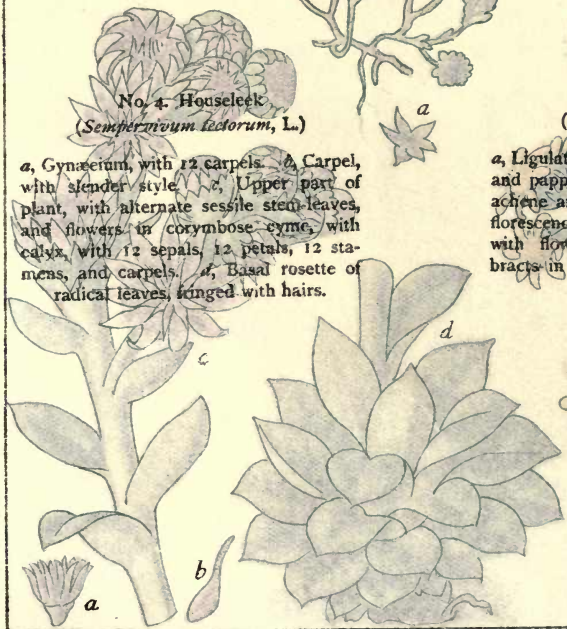 No. 4. Houseleek
(Sempervivum tectorum, L.)
a, Gynæcium, with 12 carpels. b, Carpel,
with slender style. c, Upper part of
plant, with alternate sessile stem-leaves,
and flowers in corymbose cyme, with
calyx, with 12 sepals, 12 petals, 12 sta-
mens, and carpels. d, Basal rosette of
radical leaves, fringed with hairs.
a
(
a, Ligulat
and papp
achene a
florescenc
with flow
bracts in
c
d
b
a